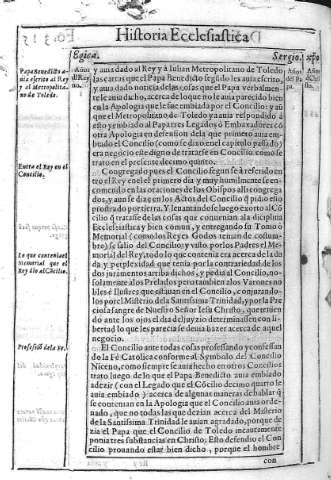 Historia Ecclesiastica
Egica.
Sergio.
Papa Benedicto a-
uia escrito al Rey
y el Metropolita
no de Toledo.
Entra el Rey en el
Concilio.
Lo que contenia el
Memorial que el
Rey dio al Cõcilio.
Profession de la Fe.
y auia dado al Rey y a Iulian Metropolitano de Toledo
las cartas que el Papa Benedicto segũdo les auia escrito,
y auia dado noticia de las cosas que el Papa verbalmen-
te le auia dicho, acerca de lo que no le auia parecido bien
en la Apologia que le fue embiada por el Concilio: y assi
que el Metropolitano de Toledo ya auia respondido à
esto y embiado al Papa tres Legados ò Embaxadores cõ
otra Apologia en defension de la que primero auia em-
biado el Concilio (como se dixo en el capitulo passado)
era negocio este digno de tratarse en Concilio, como se
trato en el presente decimo quinto.
Congregado pues el Concilio segun se à referido en
tro el Rey en el primero dia y muy humilmente se en-
comendo en las oraciones de los Obispos alli congrega
dos, y aun se dize en los Actos del Concilio q̃ pidio esto
prostrado por tierra. Y leuantandose luego exorto al Cõ
cilio q̃ tratasse de las cosas que conuenian a la diciplina
Ecclesiastica y bien comun, y entregando su Tomo o
Memorial (como los Reyes Godos tenian de costum-
bre) se salio del Concilio: y visto por los Padres el Me-
morial del Rey, todo lo que contenia era acerca de la du
da y perplexidad que tenia por la contrariedad de los
dos juramentos arriba dichos, y pedia al Concilio, no
solamente a los Prelados pero tambien a los Varones no
bles e Illustres que estauan en el Concilio, conjurando-
los por el Misterio de la Santissima Trinidad, y por la Pre
ciosa sangre de Nuestro Señor Iesu Christo, que tenien
do ante los ojos el dia del juyzio determinassen con li-
bertad lo que les parecia se deuia hazer acerca de aquel
negocio.
El Concilio ante todas cosas professando y confessan
do la Fè Catolica conforme al Symbolo del Concilio
Niceno, como siempre se auia hecho en otros Concilios
trato luego de lo que el Papa Benedicto auia embiado
a dezir (con el Legado que el Cõcilio decimo quarto le
auia embiado) acerca de algunas maneras de hablar q̃
se contenian en la Apologia que el Concilio auia orde-
nado, que no todas las que dezian acerca del Misterio
de la Santissima Trinidad le auian agradado, porque de
zia el Papa que el Concilio de Toledo incautamente
ponia tres substancias en Christo. Esto defendio el Con
cilio prouando estar bien dicho, porque el hombre
con